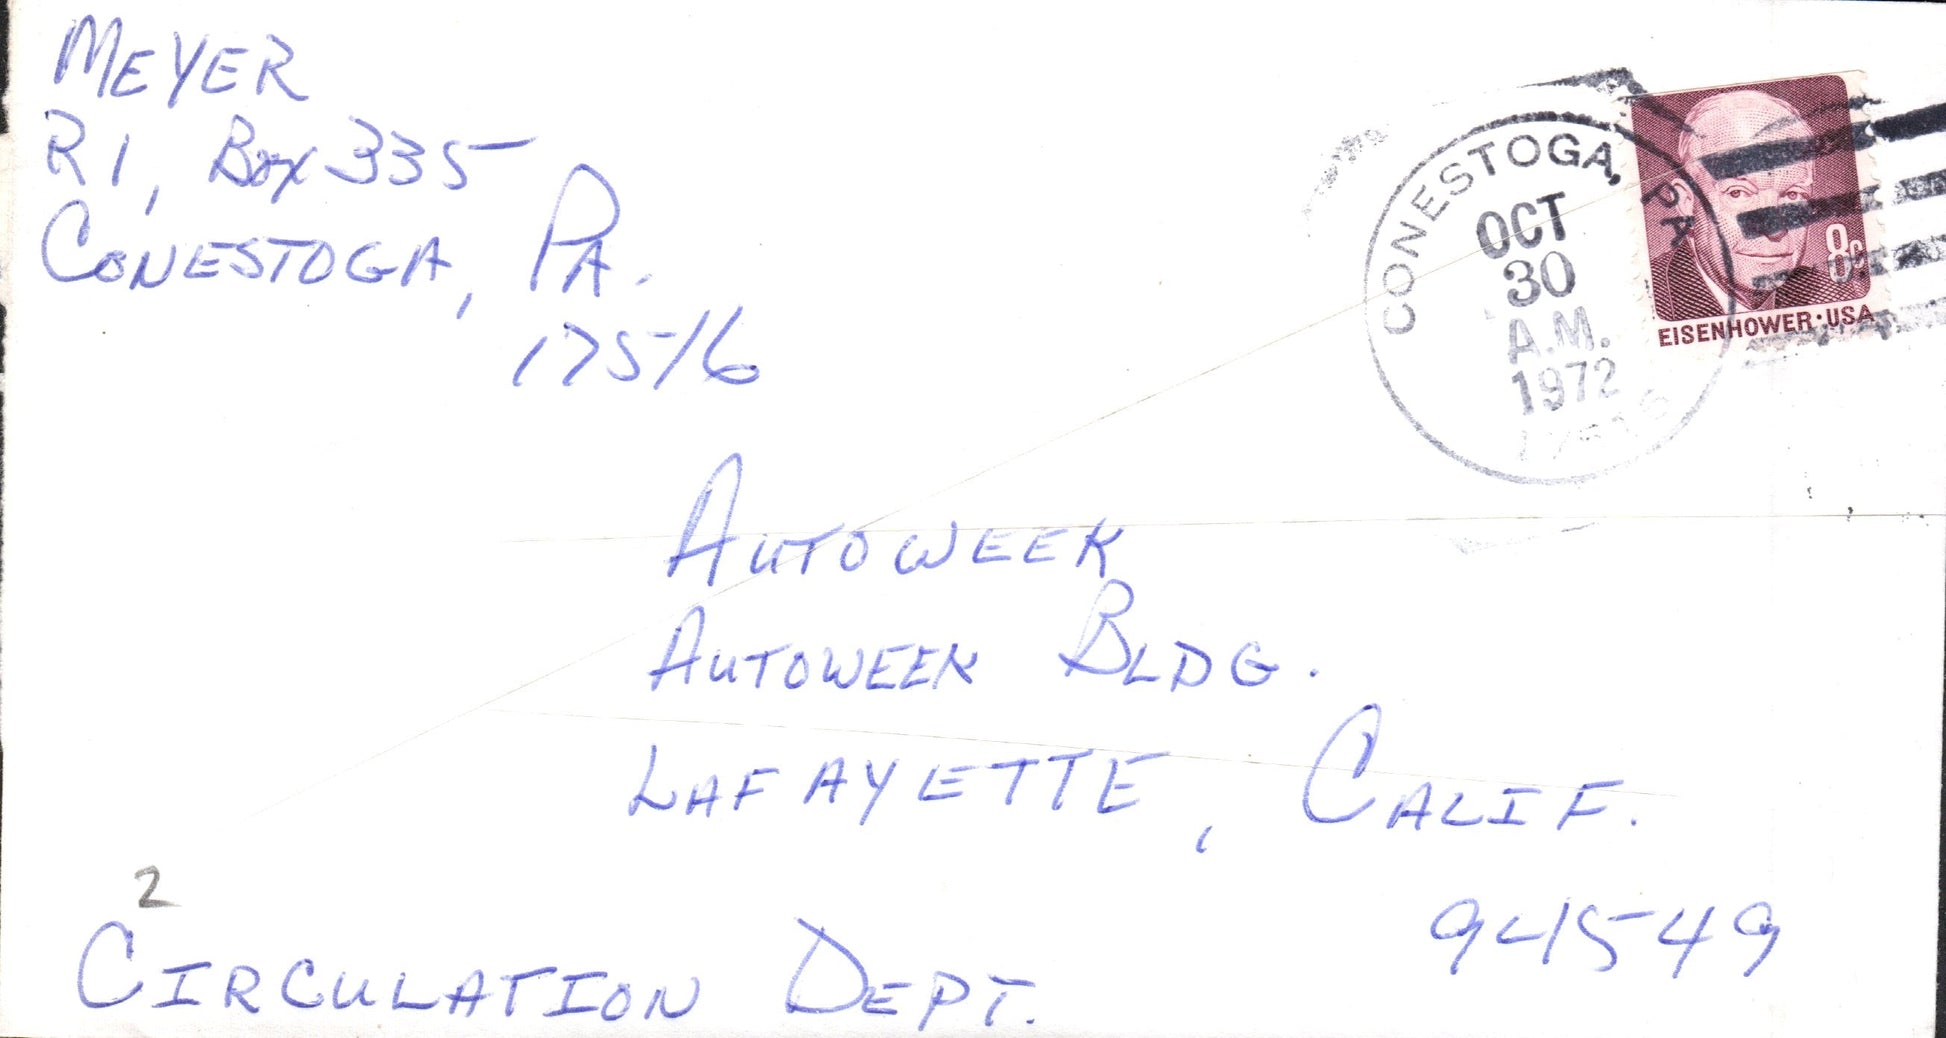 MEYER
R1, Box 335
CONESTOGA, PA.
17516
CONESTOGA, PA
OCT
30
A.M.
1972
17516
8c
EISENHOWER · USA
AUTOWEEK
AUTOWEEK BLDG.
LAFAYETTE, CALIF.
94549
2
CIRCULATION DEPT.